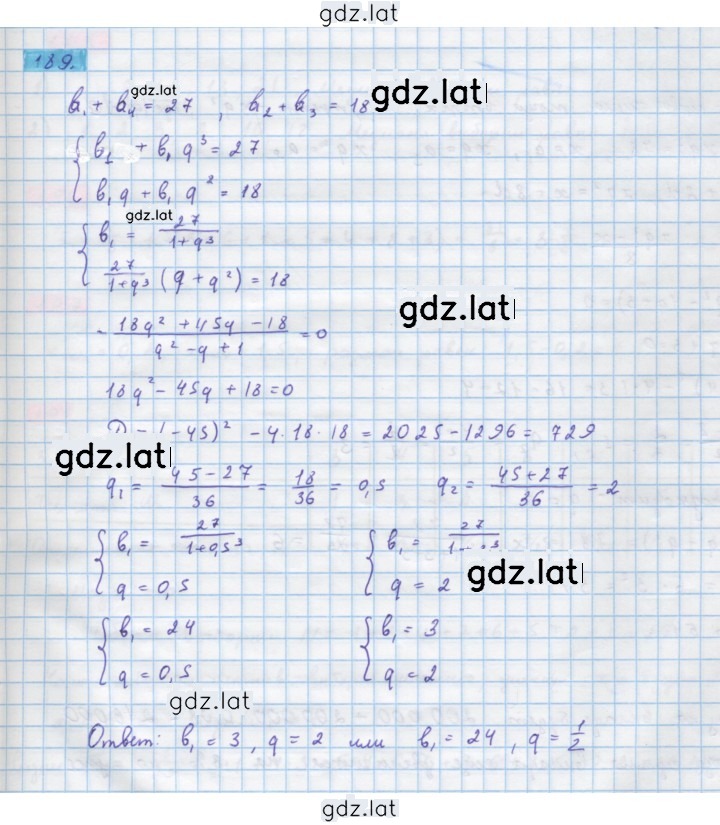 gdz.lat
189.
gdz.lat
b₁ + b₄ = 27 , b₂ + b₃ = 18 gdz.lat
b₁ + b₁ q³ = 27
b₁ q + b₁ q² = 18
gdz.lat
b₁ = 27/(1+q³)
27/(1+q³) (q + q²) = 18
gdz.lat
- (18q² + 45q - 18)/(q² - q + 1) = 0
18q² - 45q + 18 = 0
D = (-45)² - 4·18·18 = 2025 - 1296 = 729
gdz.lat
q₁ = (45-27)/36 = 18/36 = 0,5 q₂ = (45+27)/36 = 2
b₁ = 27/(1+0,5³) b₁ = 27/(1
q = 0,5 q = 2 gdz.lat
b₁ = 24 b₁ = 3
q = 0,5 q = 2
gdz.lat
Ответ: b₁ = 3 , q = 2 или b₁ = 24 , q = 1/2
gdz.lat